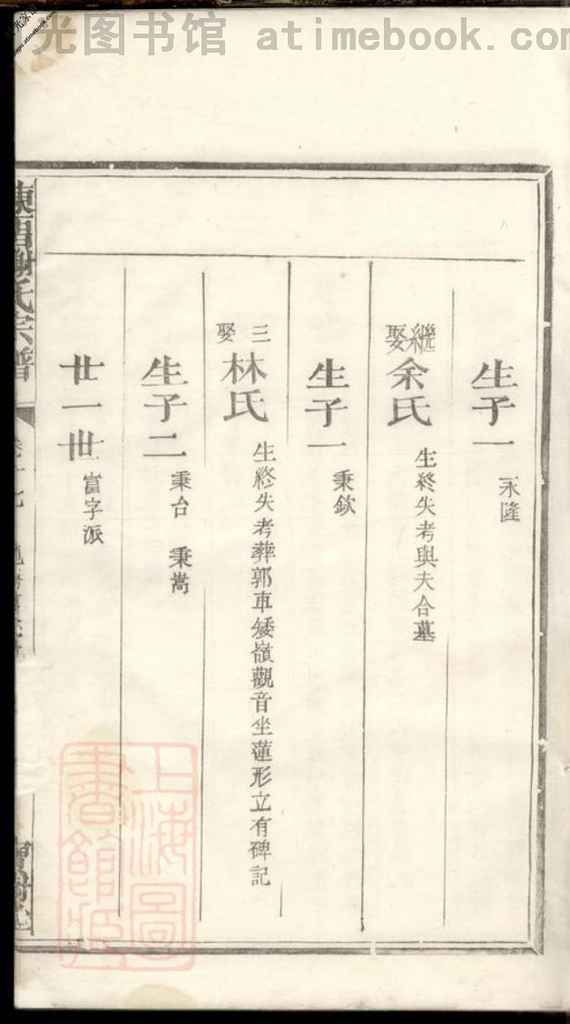 光图书馆 atimebook.com
生子一 永隆
繼娶余氏 生終失考與夫合墓
生子一 秉欽
三娶林氏 生終失考葬郭車矮嶺觀音坐蓮形立有碑記
生子二 秉台 秉嵩
廿一世 富字派
氏宗譜
上海圖
書館